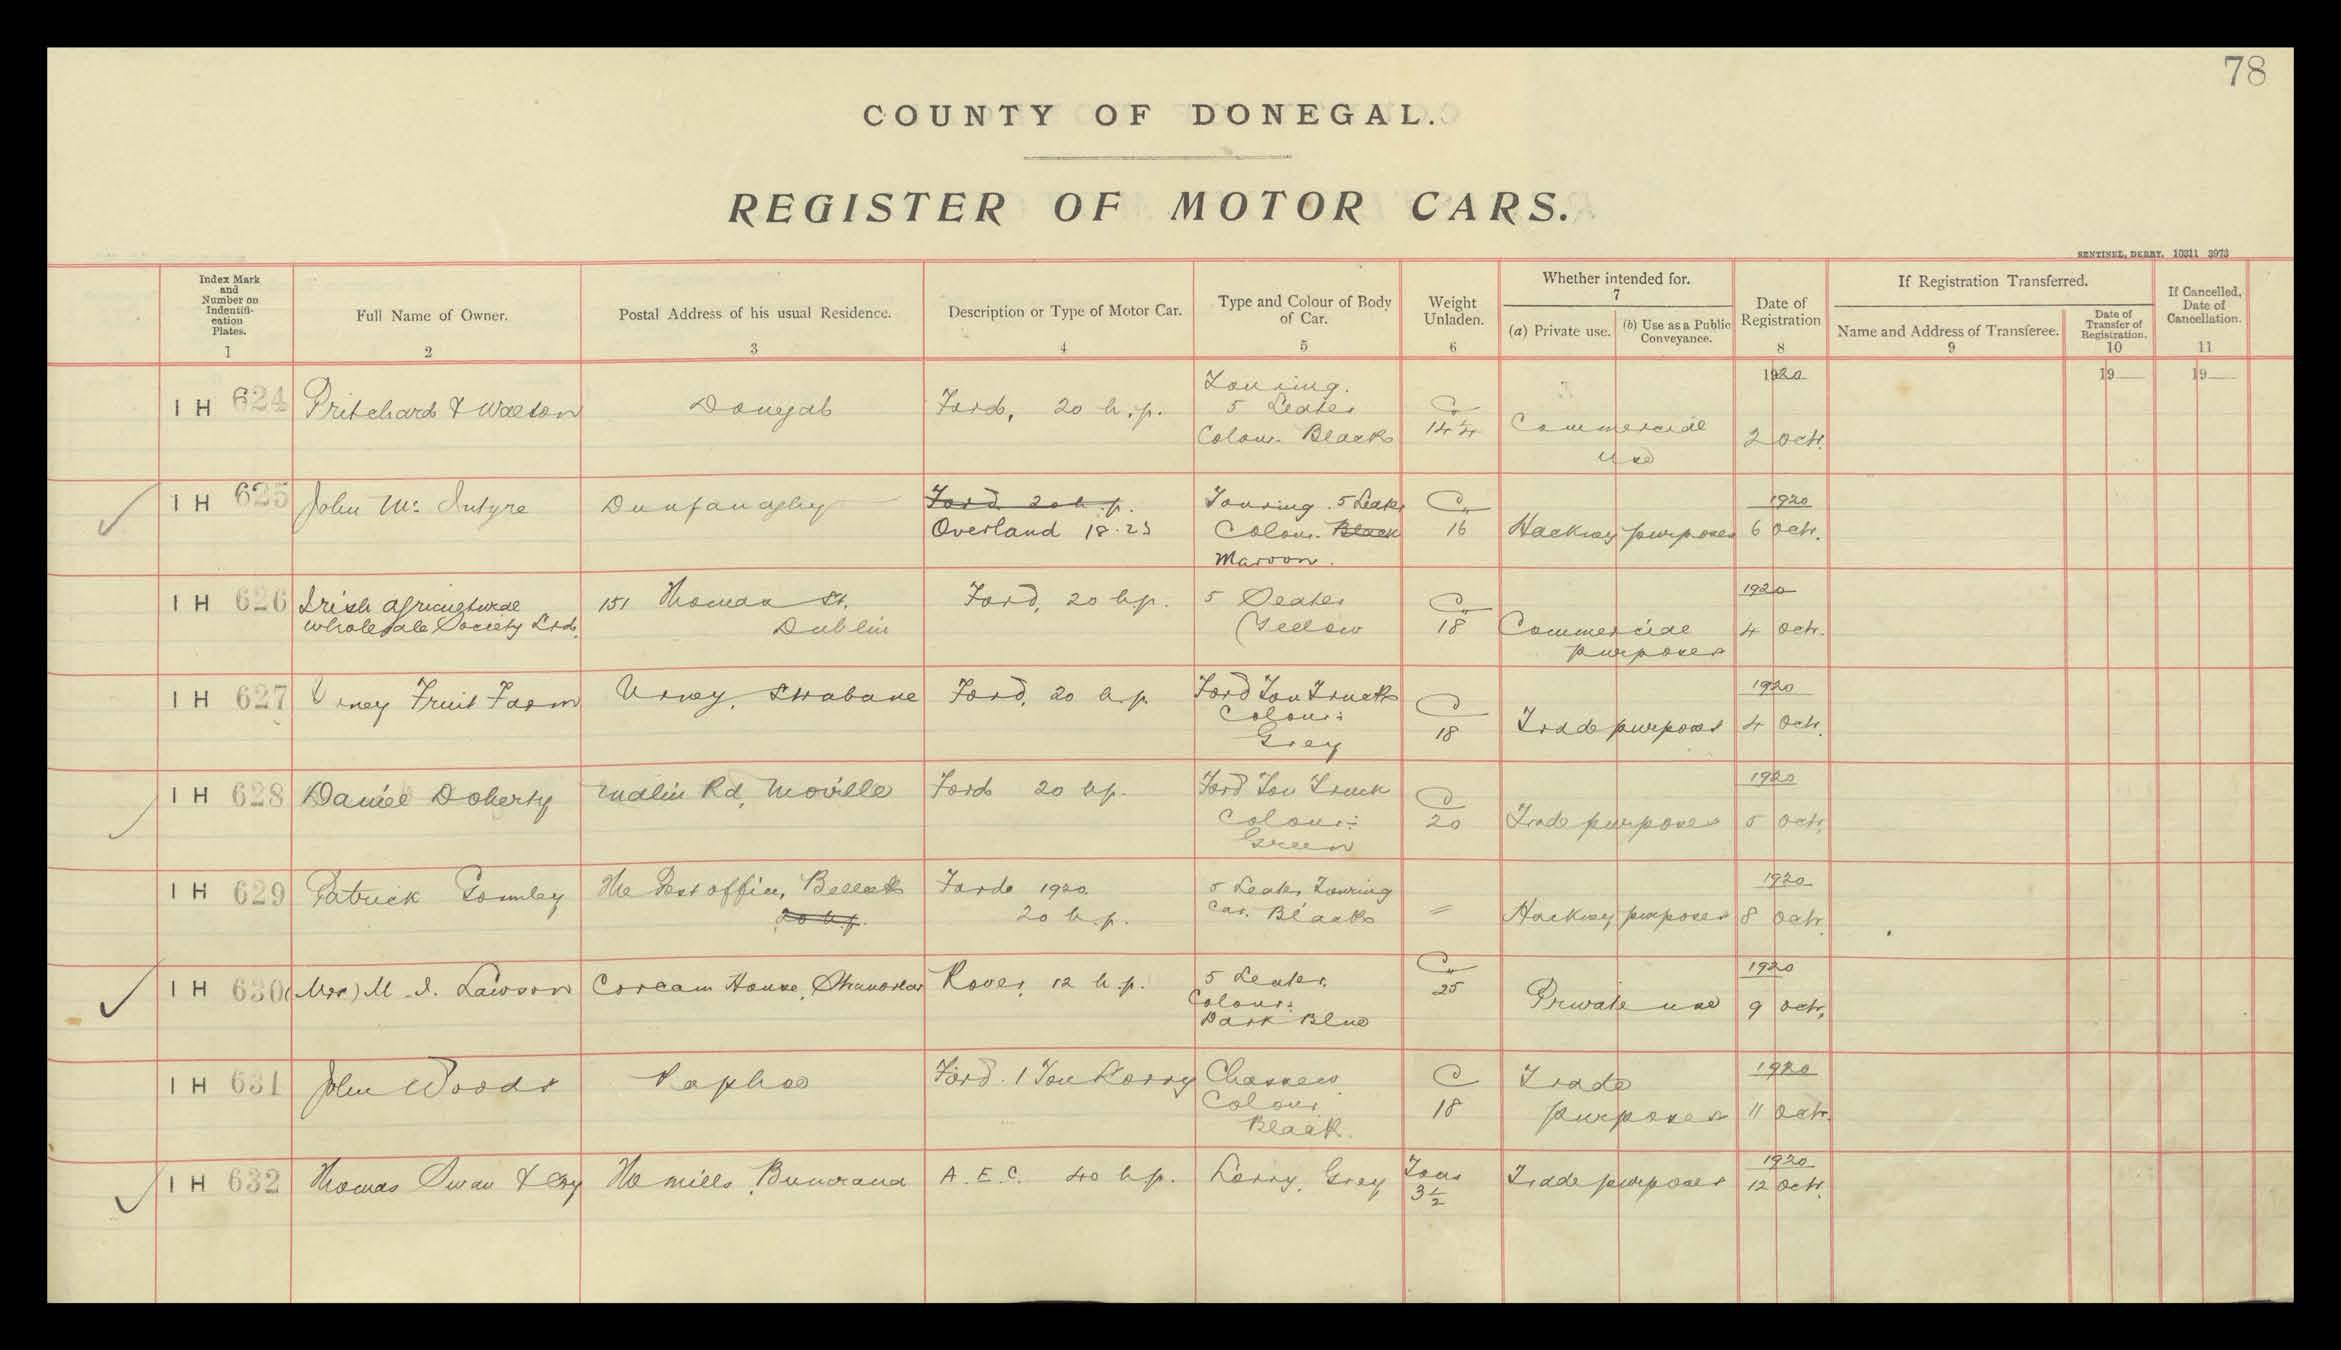 78
COUNTY OF DONEGAL.
REGISTER OF MOTOR CARS.
SENTINEL, DERRY. 10311 3973
Index Mark and Number on Indentifi-cation Plates. 1
Full Name of Owner. 2
Postal Address of his usual Residence. 3
Description or Type of Motor Car. 4
Type and Colour of Body of Car. 5
Weight Unladen. 6
Whether intended for. 7
(a) Private use.
(b) Use as a Public Conveyance.
Date of Registration 8
If Registration Transferred.
Name and Address of Transferee. 9
Date of Transfer of Registration. 10
If Cancelled, Date of Cancellation. 11
1920 19 19
I H 624 Pritchard & Walton Donegal Ford, 20 h.p. Touring. 5 Seater Colour Black C 14¼ Commercial Use 2 Octr.
I H 625 John Mc Intyre Dunfanaghy Ford 20 h.p. Overland 18.23 Touring. 5 Seater Colour Black Maroon. C 16 Hackney purposes 1920 6 Octr.
I H 626 Irish Agricultural Wholesale Society Ltd. 151 Thomas St. Dublin Ford, 20 h.p. 5 Seater Yellow C 18 Commercial purposes 1920 4 Octr.
I H 627 Urney Fruit Farm Urney, Strabane Ford, 20 h.p. Ford Ton Truck Colour: Grey C 18 Trade purposes 1920 4 Octr.
I H 628 Daniel Doherty Malin Rd, Moville Ford 20 h.p. Ford Ton Truck Colour: Green C 20 Trade purposes 1920 5 Octr.
I H 629 Patrick Gormley The Post office, Belleek 20 h.p. Ford 1920 20 h.p. 5 Seater Touring Car. Black = Hackney purposes 1920 8 Octr.
I H 630 (Mrs) M. I. Lawson Corcam House, Stranorlar Rover, 12 h.p. 5 Seater, Colour: Dark Blue C 25 Private use 1920 9 Octr.
I H 631 John Woods Raphoe Ford. 1 Ton Lorry Colour Black. C 18 Trade purposes 1920 11 Octr.
I H 632 Thomas Swan & Coy The mills, Buncrana A.E.C. 40 h.p. Lorry, Grey Tons 3½ Trade purposes 1920 12 Octr.